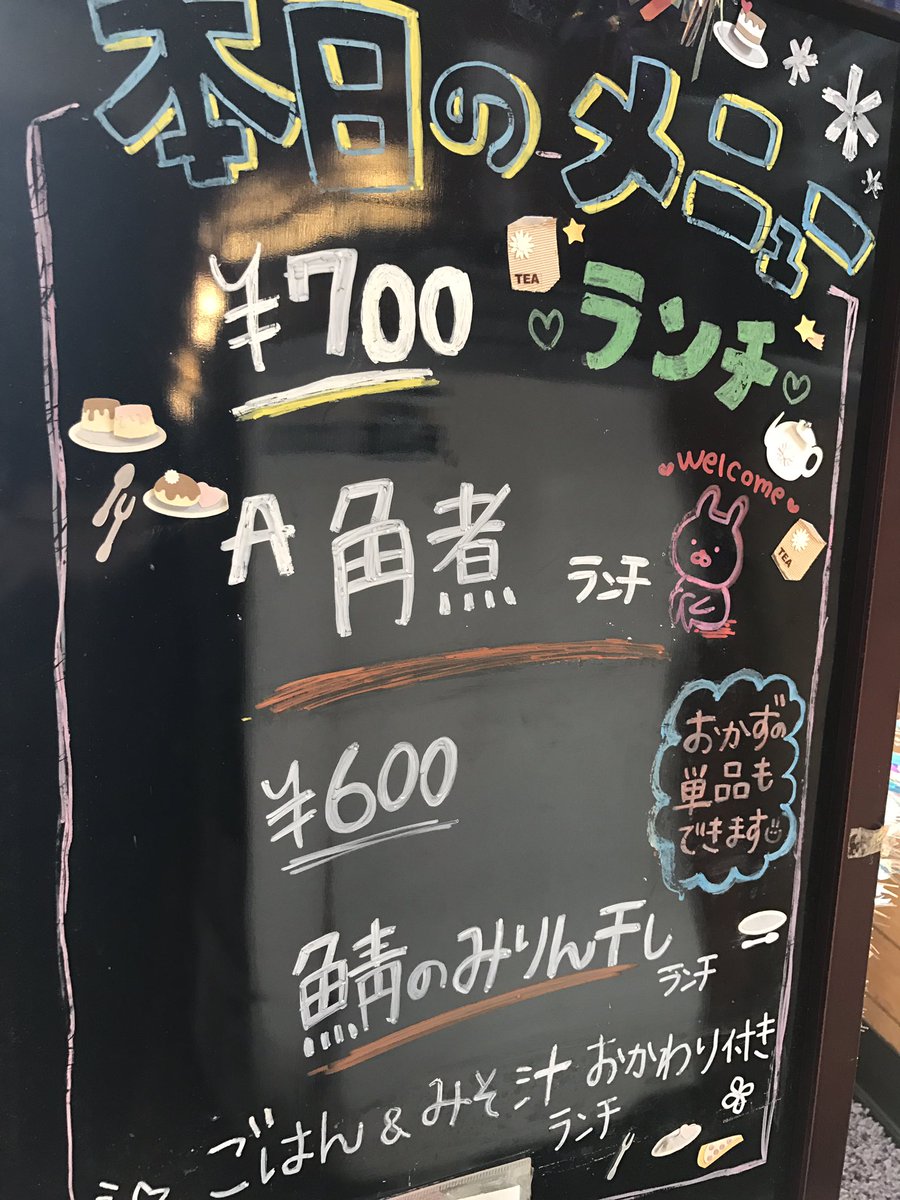 本日のメニュー
¥700
TEA
ランチ
welcome
A 角煮 ランチ
TEA
¥600
おかずの
単品も
できます
鯖のみりん干し
ランチ
ごはん & みそ汁 おかわり付き
ランチ